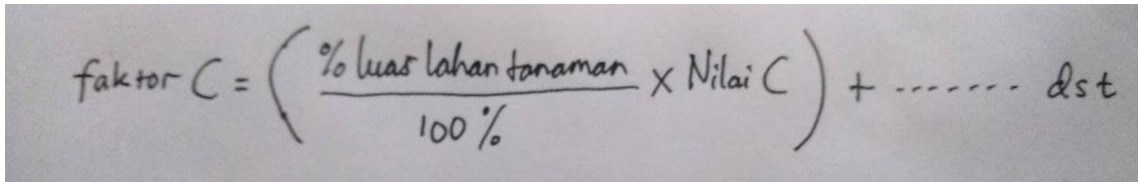 faktor C = ( % luas lahan tanaman / 100 % x Nilai C ) + ....... dst